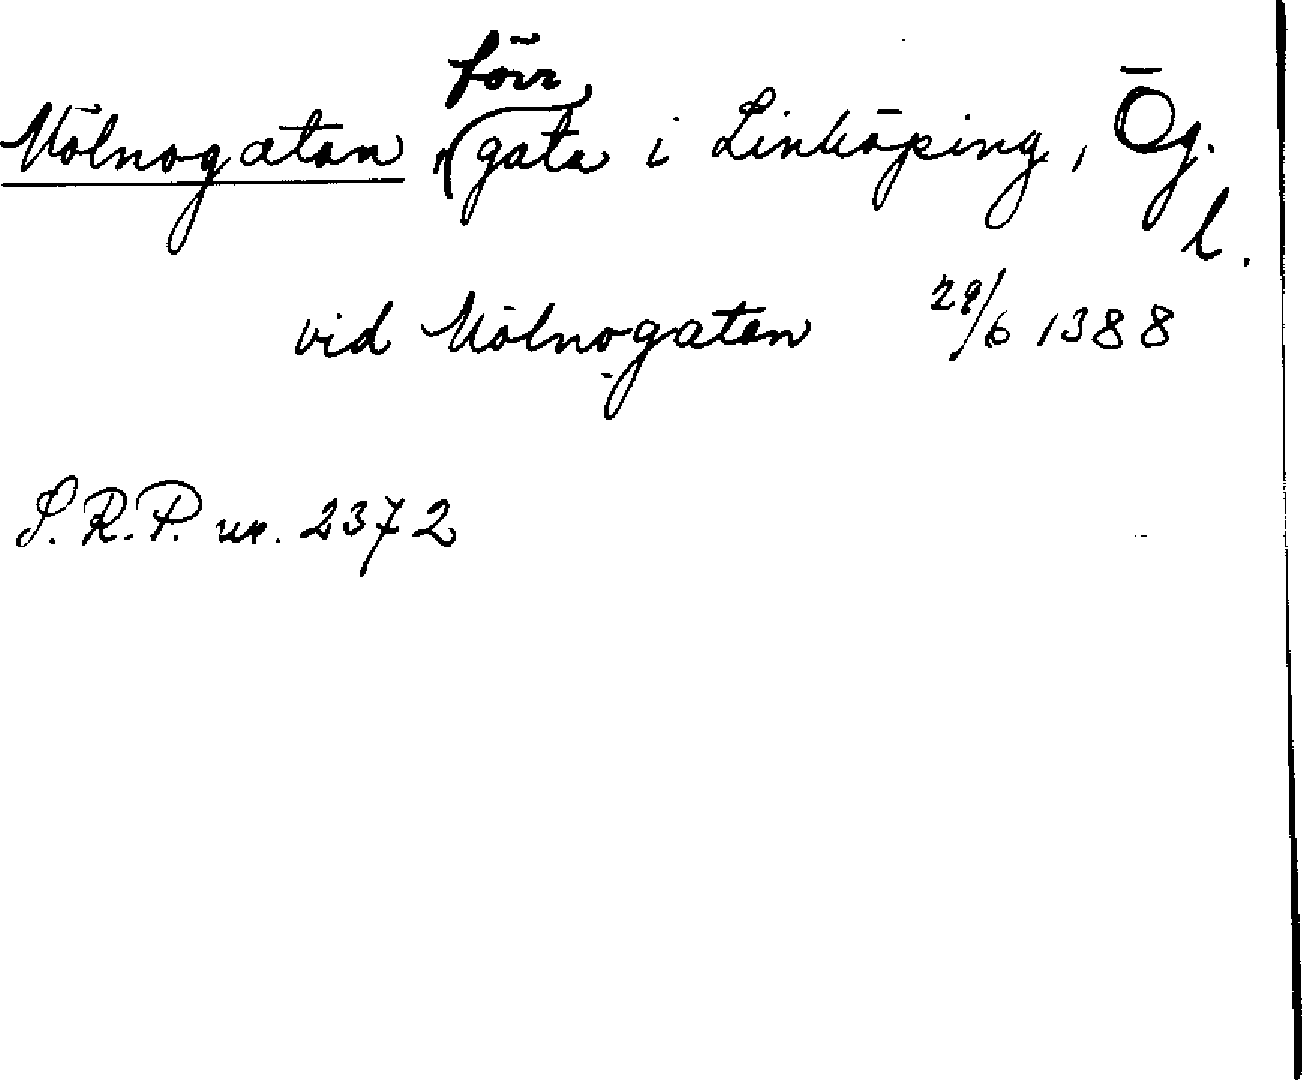 Mölnogatan förr gata i Linköping, Ög. l.
vid Mölnogatan 29/6 1388
S.R.P. nr. 2372